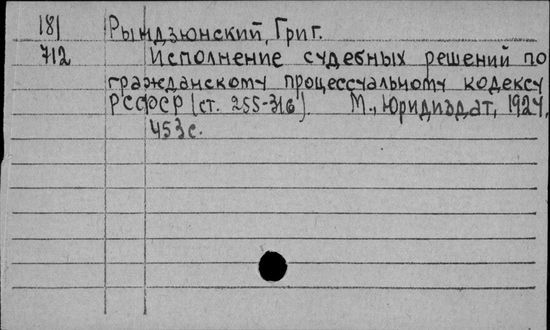 181 Рымдзюнский, Григ.
712 Исполнение судебных решений по
гражданскому процессуальному кодексу
РСФСР (ст. 255-316). М., Юридиздат, 1924,
453 с.